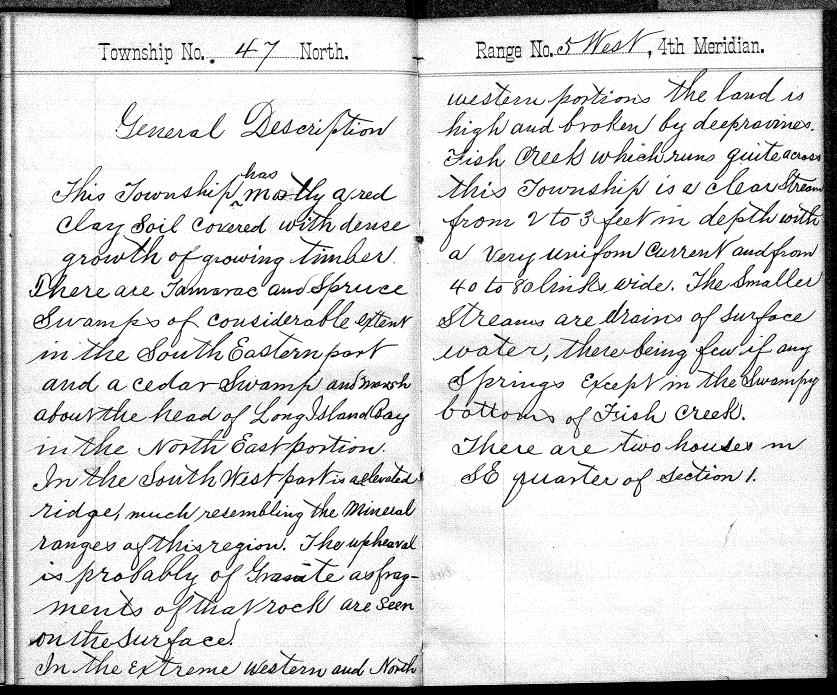 Township No. 47 North.
General Description
has
This Township ^ mostly a red
Clay Soil Covered with dense
growth of growing timber.
There are Tamarac and Spruce
Swamps of considerable extent
in the South Eastern part
and a cedar Swamp and marsh
about the head of Long Island Bay
in the North East portion.
In the South West part is a elevated
ridge, much resembling the Mineral
ranges of this region. The upheaval
is probably of Granite as frag-
ments of that rock are Seen
on the Surface.
In the Extreme western and North
Range No. 5 West, 4th Meridian.
western portions the land is
high and broken by deep ravines.
Fish Creek which runs quite across
this Township is a clear Stream
from 2 to 3 feet in depth with
a very unifom Current and from
40 to 80 links wide. The Smaller
Streams are drains of Surface
water, there being few if any
Springs Except in the Swampy
bottoms of Fish Creek.
There are two houses in
SE quarter of Section 1.